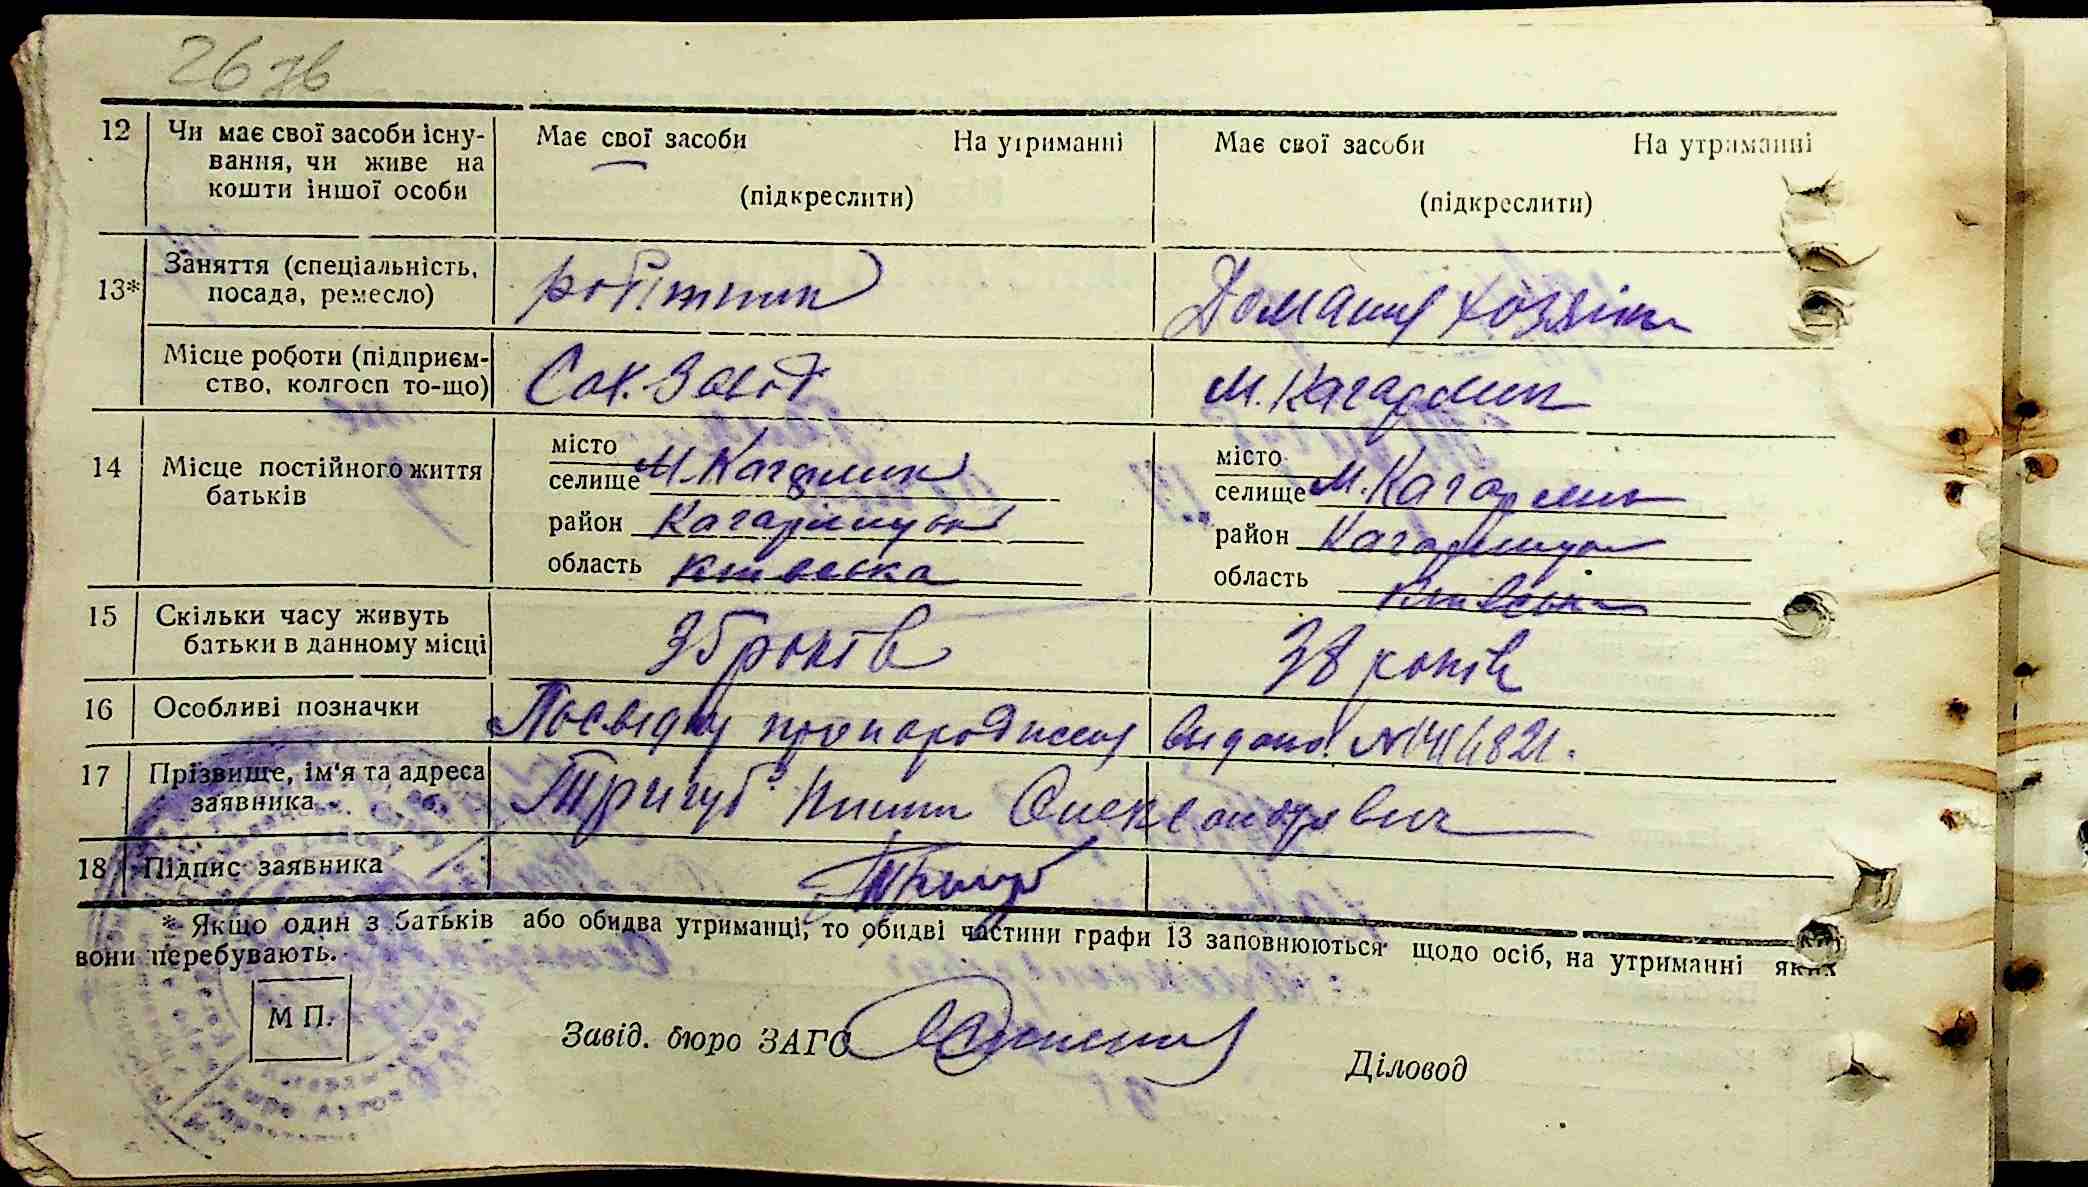 26 зв
12 Чи має свої засоби існу- Має свої засоби На утриманні Має свої засоби На утриманні
вання, чи живе на
кошти іншої особи (підкреслити) (підкреслити)
13* Заняття (спеціальність, робітник Домашня хозяйка
посада, ремесло)
Місце роботи (підприєм- Сах. Завод М. Кагарлик
ство, колгосп то-що)
14 Місце постійного життя місто місто
батьків селище М. Кагарлик селище М. Кагарлик
район Кагарлицький район
область Київська область Київська
15 Скільки часу живуть 35 років 38 років
батьки в данному місці
16 Особливі позначки Посвідку про народження видано.
17 Прізвище, ім'я та адреса Тригуб Олександрович
заявника
18 Підпис заявника Тригуб
* Якщо один з батьків або обидва утриманці, то обидві частини графи 13 заповнюються щодо осіб, на утриманні яких
вони перебувають.
М П.
Завід. бюро ЗАГС
Діловод